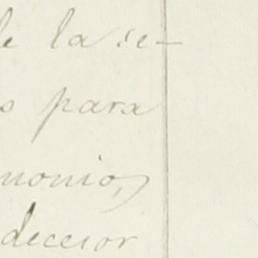 de la se-
s para
monio,
decesor